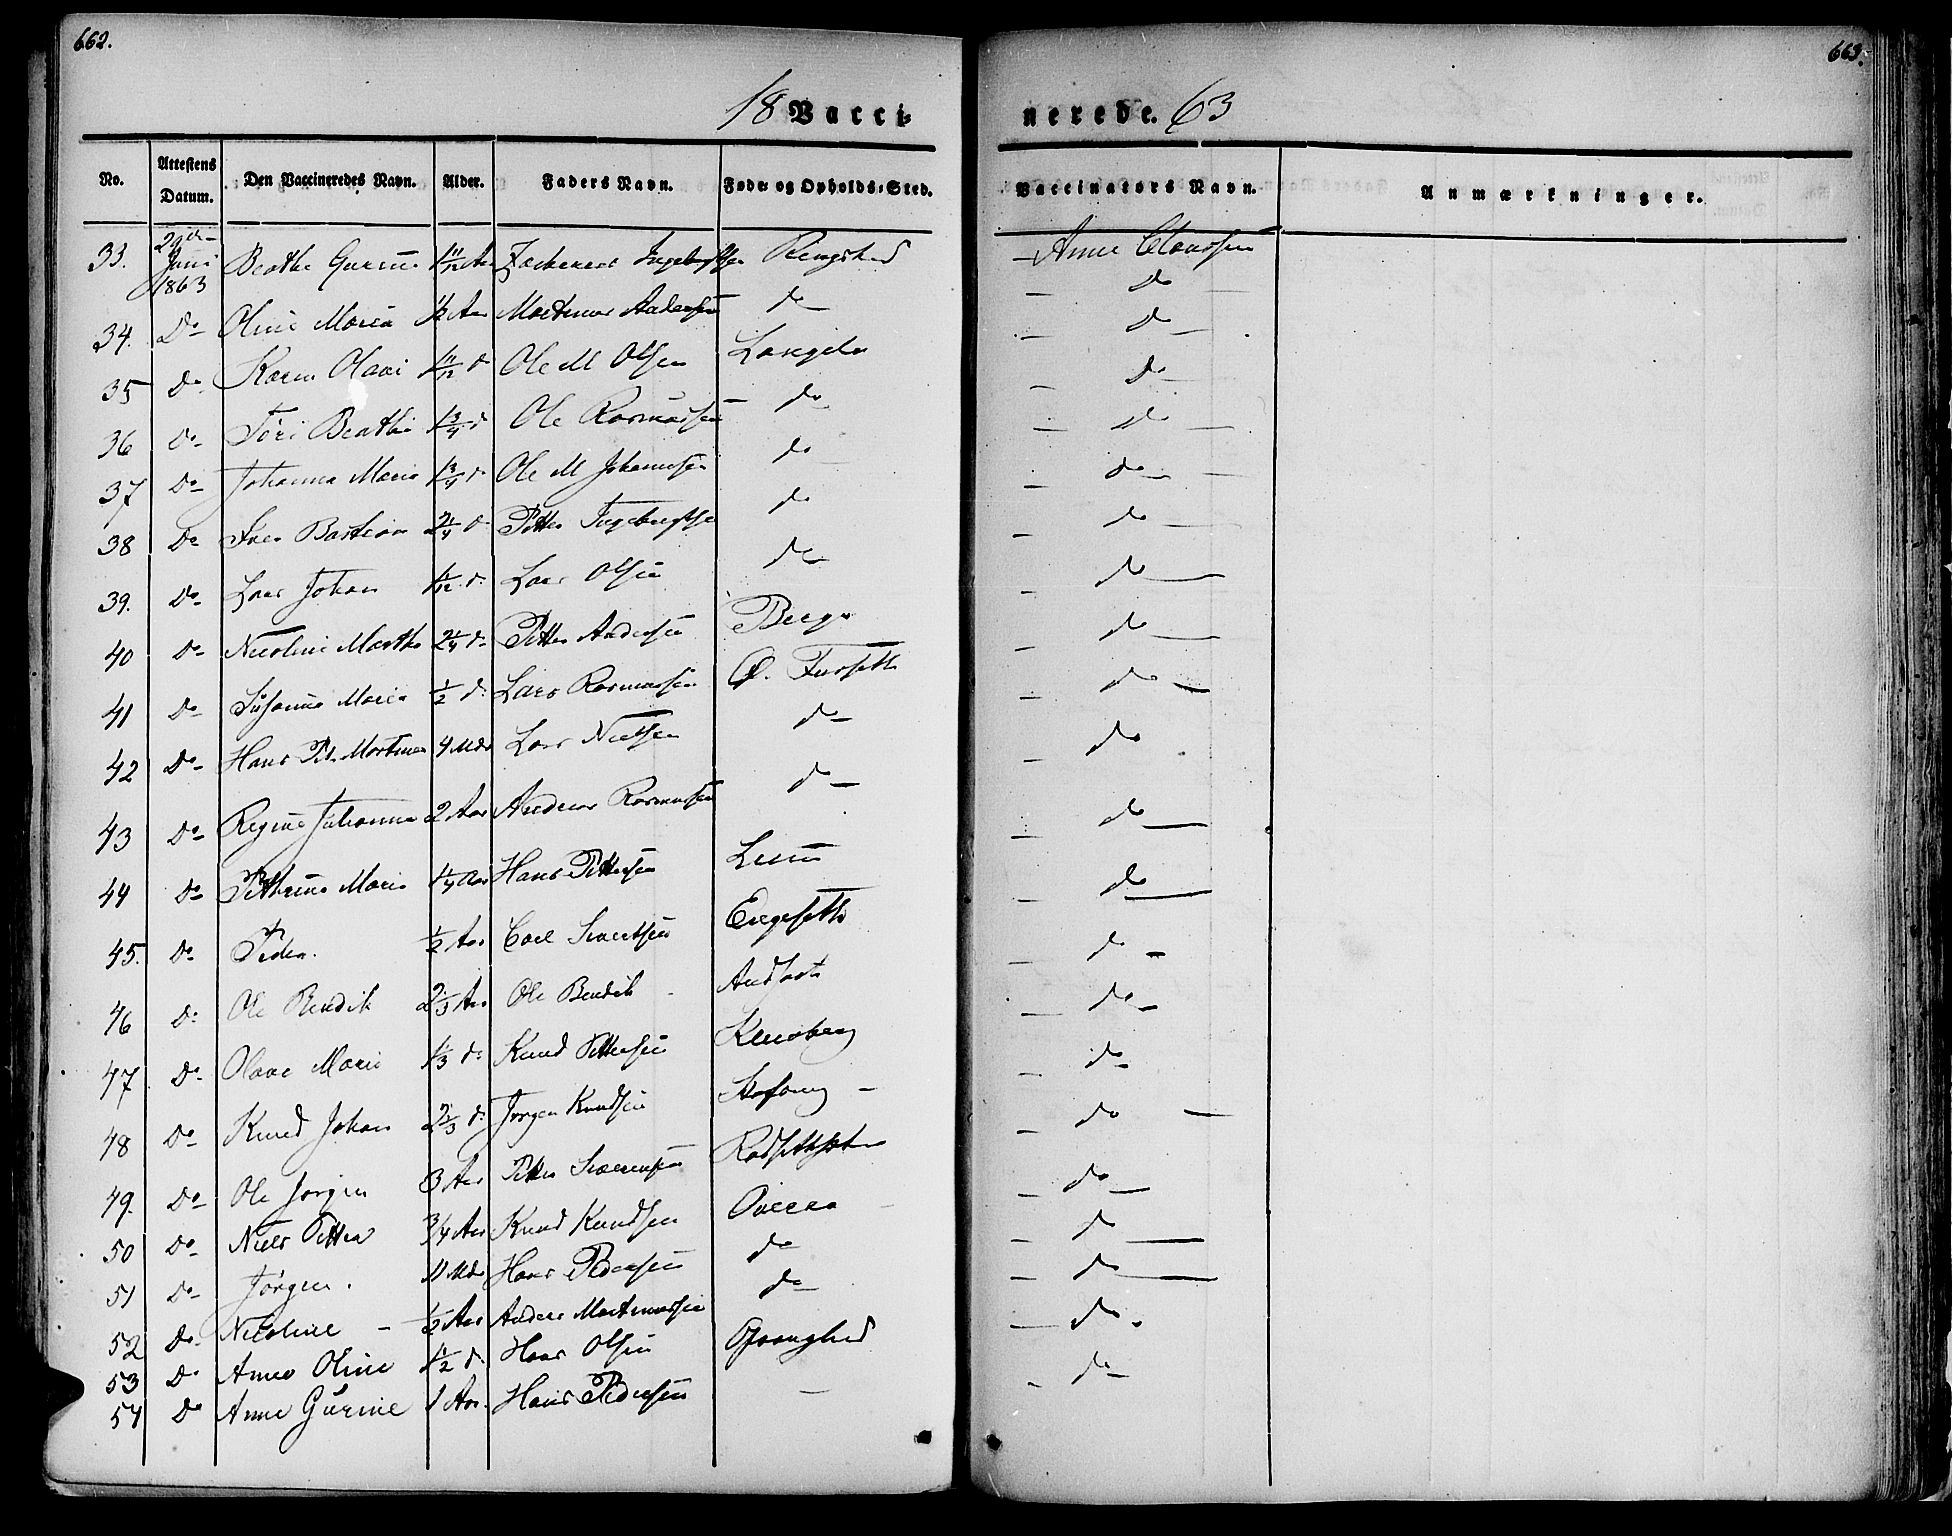 662.
663.
18 Vacci-
nerede. 63
No. Attestens Datum. Den Vaccineredes Navn. Alder. Faders Navn. Føde- og Opholds-Sted. Vaccinators Navn. Anmærkninger.
33. 29de Juni 1863 Beathe Gurine 1 11/12 Aar Ingebrigtsen Ringstad Anne Claussen
34. Do Oline Maria 1/2 Aar Martinus Andersen do do
35 do Karen Olave 1 11/12 d Ole M Olsen Langelo do
36 do Beathe 1 3/4 d Ole Rasmussen do do
37 Do Johanna Maria 1 3/4 d Ole M Johannsen do do
38 Do Iver Bastian 2 1/4 d Petter Ingebrigtsen do do
39. Do Lars Johan 1/12 d. Lars Olsen do do
40 do Nicoline Marthe 2 1/4 d Petter Andersen Berge do
41 Do Susanne Maria 1/2 d. Lars Rasmussen Ø. Furseth do
42 Do Hans Pet. Martinus 4 Mdr Lars Nielsen do do
43 Do Regine Johanna 2 Aar Andreas Rasmussen do do
44 Do Pethrine Marie 1 1/4 Aar Hans Pettersen do
45. Do Peder. 1/2 Aar Carl Sivertsen Engesetth do
46 D. Ole Bendik 2 1/3 Aar Ole Bendik do
47 Do Olave Marie 1/3 do Knud Pettersen do
48 Do Knud Johan 2 2/3 d. Jørgen Knudsen do
49. Do Ole Jørgen 3 Aar Petter do
50 Do Niels Petter 3/4 Aar Knud Knudsen do
51 Do Jørgen. 11 Mdr Hans Pedersen do do
52 Do Nicoline – 1/2 Aar Anders Martinussen do do
53 Do Anne Oline 1 1/2 d. Hans Olsen do
54 Do Anne Gurine 1 Aar. Hans Pedersen –